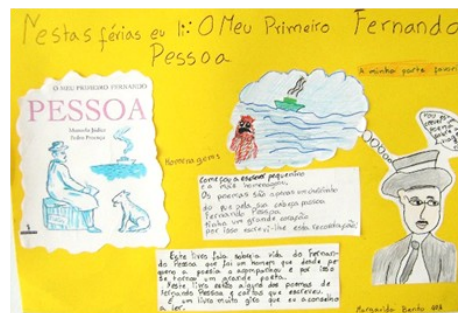 Nestas férias eu li: O Meu Primeiro Fernando
Pessoa
A minha parte favori
O MEU PRIMEIRO FERNANDO
PESSOA
Manuela Júdice
Pedro Proença
Homenagem
Começou a escrever pequenino
e a mais homenagem,
Os poemas são apenas um bocadinho
do que pela sua cabeça passou
Fernando Pessoa
tinha um grande coração
por isso escrevi-lhe esta recordação.
Este livro fala sobre a vida do Fernan-
do Pessoa que foi um homem que desde pe-
queno a poesia o acompanhou e por isso
se tornou um grande poeta.
Neste livro estão alguns dos poemas de
Fernando Pessoa e cartas que escreveu.
É um livro muito giro que eu aconselho
a ler.
Margarida Bento